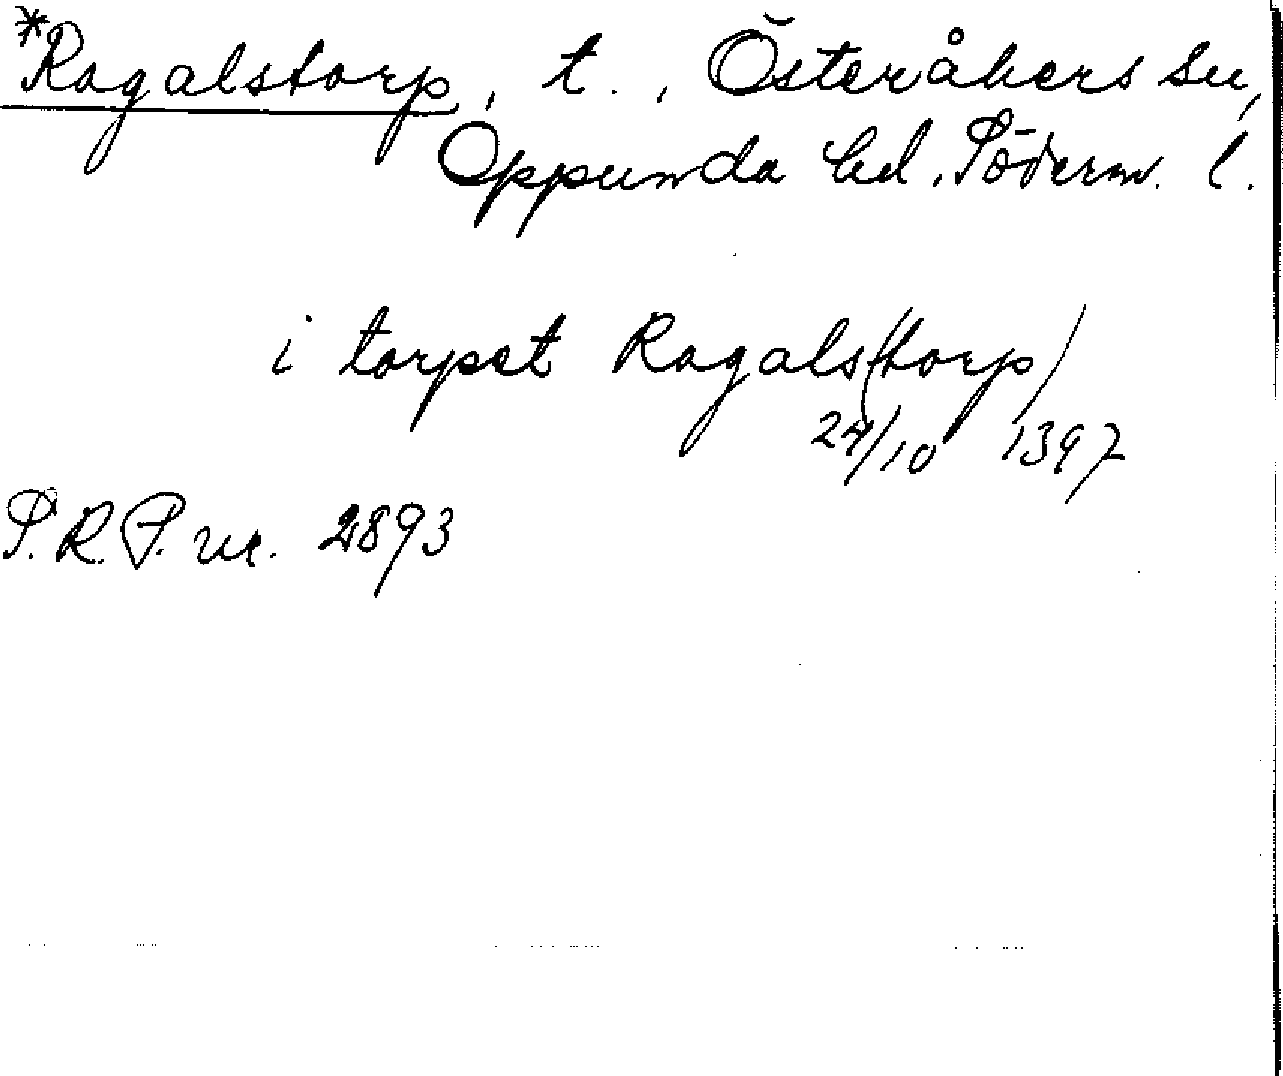 *Ragalstorp, t., Österåkers sn,
Oppunda hd, Söderm. l.
i torpet Ragals(torp)
24/10 1397
S.R.P. nr. 2893